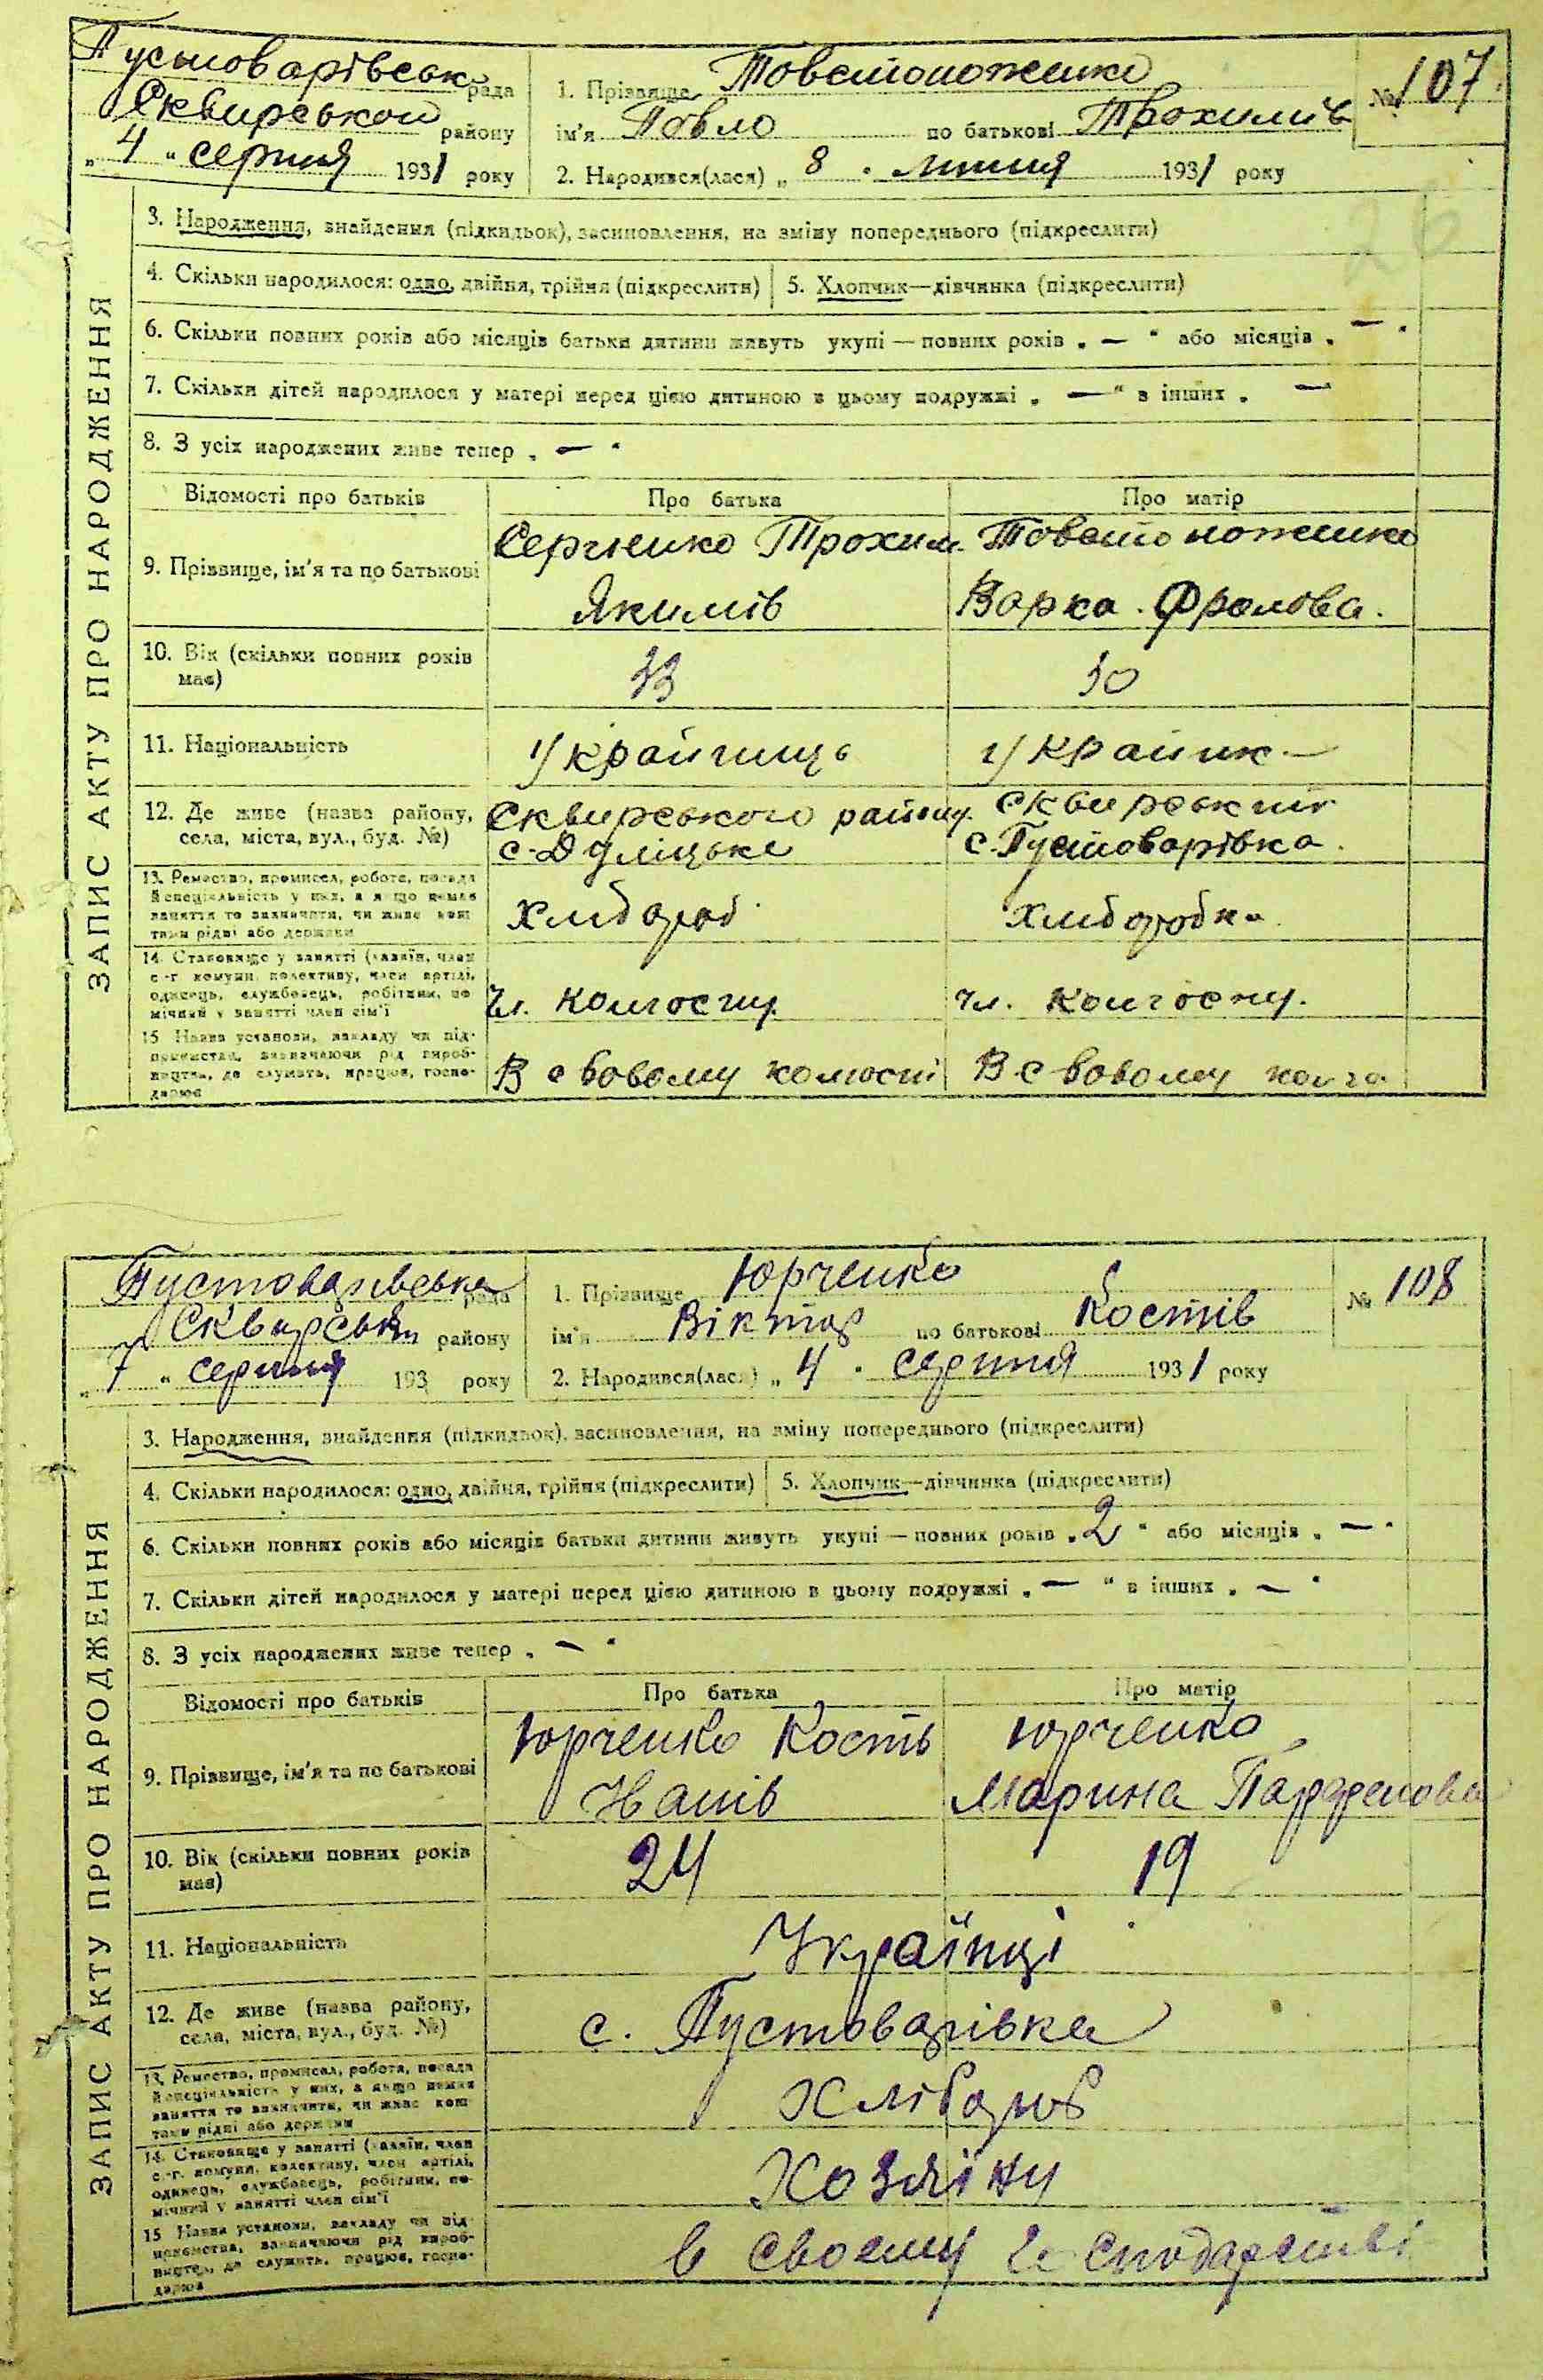 Пустоварівськ рада
Сквирської району
„ 4 “ серпня 1931 року
1. Прізвище Товстоноженко
ім'я Павло по батькові Трохимів
2. Народився(лася) „ 8 “ липня 1931 року
№ 107
ЗАПИС АКТУ ПРО НАРОДЖЕННЯ
3. Народження, знайдення (підкидьок), засиновлення, на зміну попереднього (підкреслити)
4. Скільки народилося: одно, двійня, трійня (підкреслити)
5. Хлопчик—дівчинка (підкреслити)
6. Скільки повних років або місяців батьки дитини живуть укупі — повних років „ — “ або місяців „ — “
7. Скільки дітей народилося у матері перед цією дитиною в цьому подружжі „ — “ в інших „ —
8. З усіх народжених живе тепер „ — “
Відомості про батьків Про батька Про матір
9. Прізвище, ім'я та по батькові
Сергієнко Трохим
Якимів
Товстоноженко
Варка Фролова.
10. Вік (скільки повних років має)
33
30
11. Національність
Українець
Українк —
12. Де живе (назва району,
села, міста, вул., буд. №)
Сквирського району
с. Дулицьке
Сквирський
с. Пустоварівка.
13. Ремество, промисел, робота, посада
й спеціяльність у них, а якщо немає
заняття то зазначити, чи живе кош
тами рідні або держави
Хлібороб
Хліборобка
14. Становище у занятті (хазяїн, член
с.-г. комуни, колективу, член артілі,
одинець, службовець, робітник, по
мічний у занятті член сім'ї
Чл. колгоспу.
Чл. колгоспу.
15 Назва установи, закладу чи під-
приємства, зазначаючи рід вироб-
ництва, де служить, працює, госпо-
дарює
В свовому колгоспі
В свовому колго
Пустоварівська рада
Сквирськ району
„ 7 “ серпня 193 року
1. Прізвище Юрченко
ім'я Віктор по батькові Костів
2. Народився(лася) „ 4 “ серпня 1931 року
№ 108
ЗАПИС АКТУ ПРО НАРОДЖЕННЯ
3. Народження, знайдення (підкидьок), засиновлення, на зміну попереднього (підкреслити)
4. Скільки народилося: одно, двійня, трійня (підкреслити)
5. Хлопчик—дівчинка (підкреслити)
6. Скільки повних років або місяців батьки дитини живуть укупі — повних років „ 2 “ або місяців „ — “
7. Скільки дітей народилося у матері перед цією дитиною в цьому подружжі „ — “ в інших „ — “
8. З усіх народжених живе тепер „ — “
Відомості про батьків Про батька Про матір
9. Прізвище, ім'я та по батькові
Юрченко Кость
Юрченко
Марина Парфенова
10. Вік (скільки повних років має)
24
19
11. Національність
Українці
12. Де живе (назва району,
села, міста, вул., буд. №)
с. Пустоварівка
13. Ремество, промисел, робота, посада
й спеціяльність у них, а якщо немає
заняття то зазначити, чи живе кош
тами рідні або держави
Хлібороб
14. Становище у занятті (хазяїн, член
с.-г. комуни, колективу, член артілі,
одинець, службовець, робітник, по-
мічний у занятті член сім'ї
Хозяїни
15 Назва установи, закладу чи під-
приємства, зазначаючи рід вироб-
ництва, де служить, працює, госпо-
дарює
в своєму господарстві